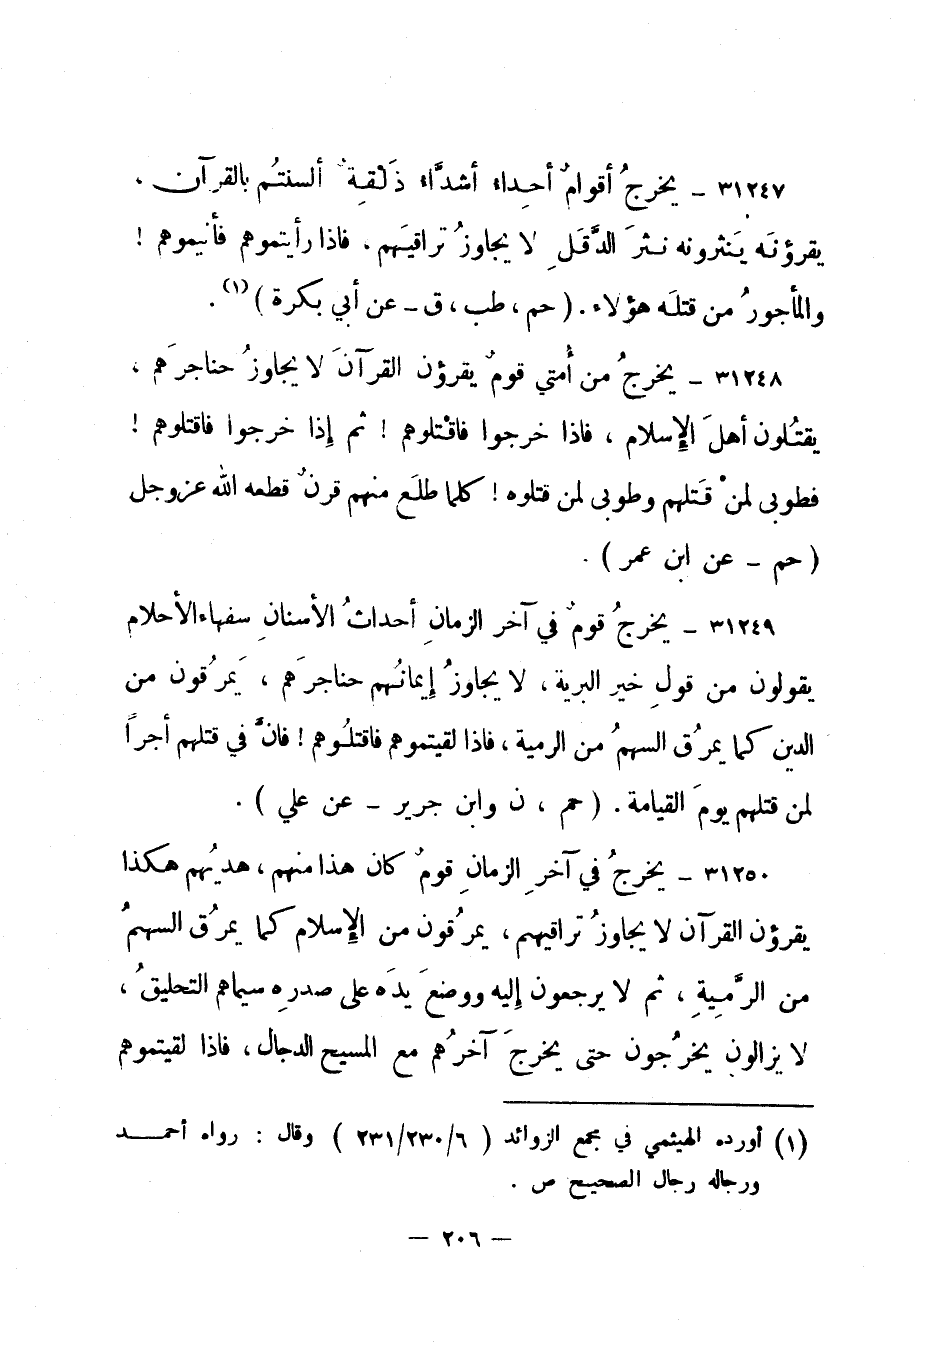 ٣١٢٤٧ ـ يخرجُ أقوامٌ أحداء أشدَّاء ذَلْقةٌ ألسنتُم بالقرآن ،
يقرؤنَه يَنثرونه نثرَ الدَّقَلِ لا يجاوزُ تراقيَهم . فاذا رأيتموهم فأنيموهم !
والمأجورُ من قتلَه هؤلاء . ( حم ، طب ، ق ـ عن أبي بكرة )(١) .
٣١٢٤٨ ـ يخرجُ من أُمتي قومٌ يقرؤن القرآنَ لا يجاوزُ حناجرَهم ،
يقتُلون أهلَ الإِسلام ، فاذا خرجوا فاقْتلوهم ! ثم إِذا خرجوا فاقتلوهم !
فطوبى لمنْ قَتلهم وطوبى لمن قتلوه ! كلما طلَع منهم قرنٌ قطعه الله عز وجل
( حم ـ عن ابن عمر ) .
٣١٢٤٩ ـ يخرجُ قومٌ في آخر الزمانِ أحداثُ الأسنانِ سفهاء الأحلام
يقولون من قولِ خير البرية ، لا يجاوزُ إِيمانُهم حناجرَهم ، يَمرُقون من
الدين كما يمرُق السهمُ من الرمية ، فاذا لقيتموهم فاقتلُوهم ! فانَّ في قتلهم أجراً
لمن قتلهم يومَ القيامة . ( حم ، ن وابن جرير ـ عن علي ) .
٣١٢٥٠ ـ يخرجُ في آخرِ الزمانِ قومٌ كان هذا منهم ، هديُهم هكذا
يقرؤن القرآن لا يجاوزُ تراقيهم ، يمرُقون من الإِسلام كما يمرُق السهمُ
من الرَّمِيةِ ، ثم لا يرجعون إِليه ووضعَ يدَه على صدرِه سيماهم التحليقُ ،
لا يزالون يخرُجون حتى يخرجَ آخرُهم مع المسيح الدجال ، فاذا لقيتموهم
(١) أورده الهيثمي في مجمع الزوائد ( ٦/٢٣٠/٢٣١ ) وقال : رواه أحمد
ورجاله رجال الصحيح ص .
— ٢٠٦ —